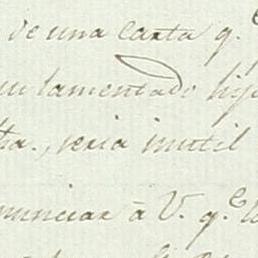 de una carta q.e
su lamentado hijo
tha., seria inutil
nunciar á V. q.e lo